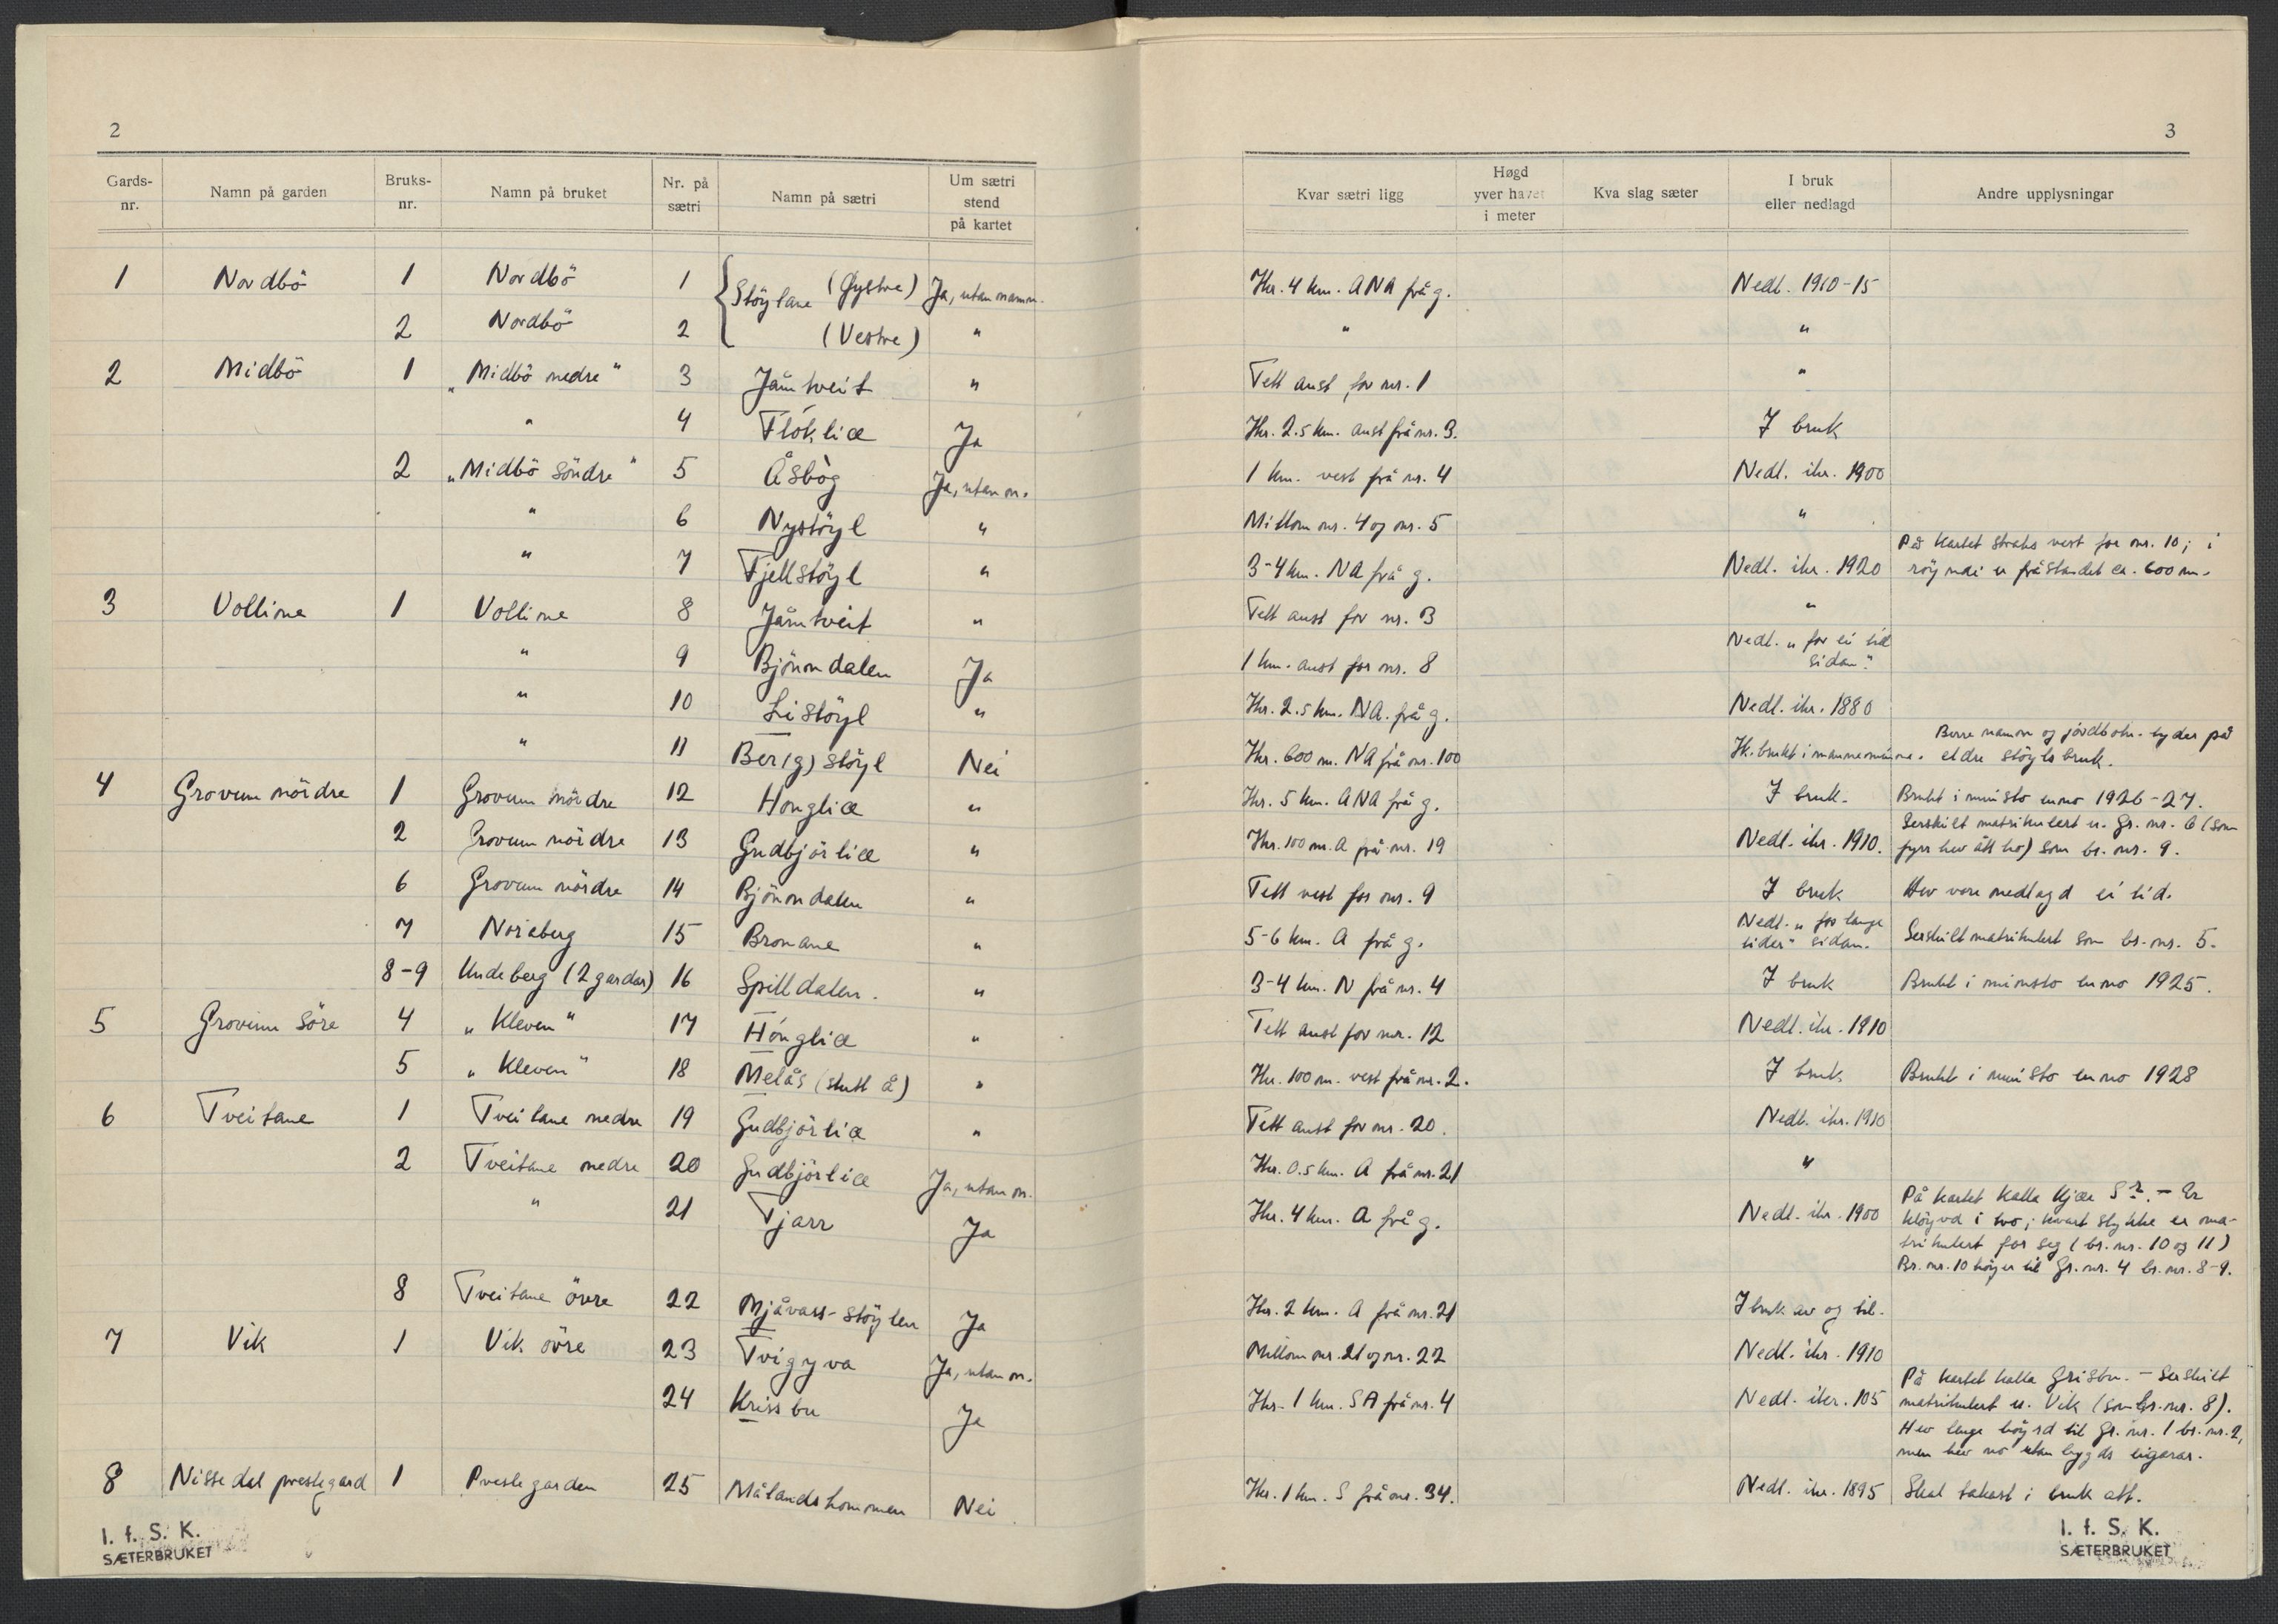 2
Gards-nr. Namn på garden Bruks-nr. Namn på bruket Nr. på sætri Namn på sætri Um sætri stend på kartet
1 Nordbö 1 Nordbö 1 Stöylane (Øystre) Ja, utan namn.
2 Nordbö 2 (Vestre) "
2 Midbö 1 "Midbö nedre" 3 Jåmtveit "
" 4 Flòklice Ja
2 "Midbö söndre" 5 Åsbòg Ja, utan n.
" 6 Nystöyl "
" 7 Fjellstöyl "
3 Volline 1 Volline 8 Jåmtveit "
" 9 Bjönndalen Ja
" 10 Listöyl "
" 11 Ber(g)stöyl Nei
4 Grovum nördre 1 Grovum nördre 12 Honglice "
2 Grovum nördre 13 Gudbjörlice "
6 Grovum nördre 14 Bjönndalen "
7 Noreberg 15 Bronane "
8-9 Undeberg (2 gardar) 16 Spilldalen. "
5 Grovum söre 4 "Kleven" 17 Hònglice "
5 "Kleven" 18 Melås (stutt å) "
6 Tveitane 1 Tveitane nedre 19 Gudbjörlice "
2 Tveitane nedre 20 Gudbjörlice Ja, utan n.
" 21 Tjarr Ja
8 Tveitane övre 22 Mjåvass-stöylen Ja
7 Vik 1 Vik övre 23 Tvigyva Ja, utan n.
24 Krissbu Ja
8 Nissedal prestegard 1 Prestegarden 25 Målandshommen Nei
I. f. S. K.
SÆTERBRUKET
3
Kvar sætri ligg Høgd yver havet i meter Kva slag sæter I bruk eller nedlagd Andre upplysningar
Ikr. 4 km. ANA frå g. Nedl. 1910-15
" "
Tett aust for nr. 1 "
Ikr. 2.5 km. aust frå nr. 3. I bruk
1 km. vest frå nr. 4 Nedl. ikr. 1900
Millom nr. 4 og nr. 5 "
På kartet straks vest for nr. 10; i
3-4 km. NA frå g. Nedl. ikr. 1920 röyndi er fråstandet ca. 600 m.
Tett aust for nr. 3 "
1 km. aust for nr. 8 Nedl. "for ei tid sidan".
Ikr. 2.5 km. NA. frå g. Nedl. ikr. 1880
Berre namn og jordbotn tyder på
Ikr. 600 m. NA frå nr. 100 Ik. brukt i manneminne. eldre stöylsbruk.
Ikr. 5 km. ANA frå g. I bruk. Brukt i minsto enno 1926-27.
Serskilt matrikulert u. Gr. nr. 6 (som
Ikr. 100 m. A frå nr. 19 Nedl. ikr. 1910. fyrr hev ått ho) som br. nr. 9.
Tett vest for nr. 9 I bruk Hev vore nedlagd ei tid.
5-6 km. A frå g. Nedl. "for lange tider" sidan. Serskilt matrikulert som br. nr. 5.
3-4 km. N frå nr. 4 I bruk Brukt i minsto enno 1925.
Tett aust for nr. 12 Nedl. ikr. 1910
Ikr. 100 m. vest frå nr. 2. I bruk Brukt i minsto enno 1928
Tett aust for nr. 20. Nedl. ikr. 1910
Ikr. 0.5 km. A frå nr. 21 "
På kartet kalla Kjær Sr. - Er
Ikr. 4 km. A frå g. Nedl. ikr. 1900 klöyvd i tvo; kvart stykke er ma-
trikulert for seg (br. nr. 10 og 11)
Br. nr. 10 höyrer til Gr. nr. 4 br. nr. 8-9.
Ikr. 2 km. A frå nr. 21 I bruk av og til.
Millom nr. 21 og nr. 22 Nedl. ikr. 1910
På kartet kalla Gristu. - Serskilt
Ikr. 1 km. SA frå nr. 4 Nedl. ikr. 105 matrikulert u. Vik (som br. nr. 8).
Hev lenge höyrd til Gr. nr. 1 br. nr. 2,
men hev no utanbygds eigarar.
Ikr. 1 km. S frå nr. 34. Nedl. ikr. 1895 Skal takast i bruk att.
I. f. S. K.
SÆTERBRUKET